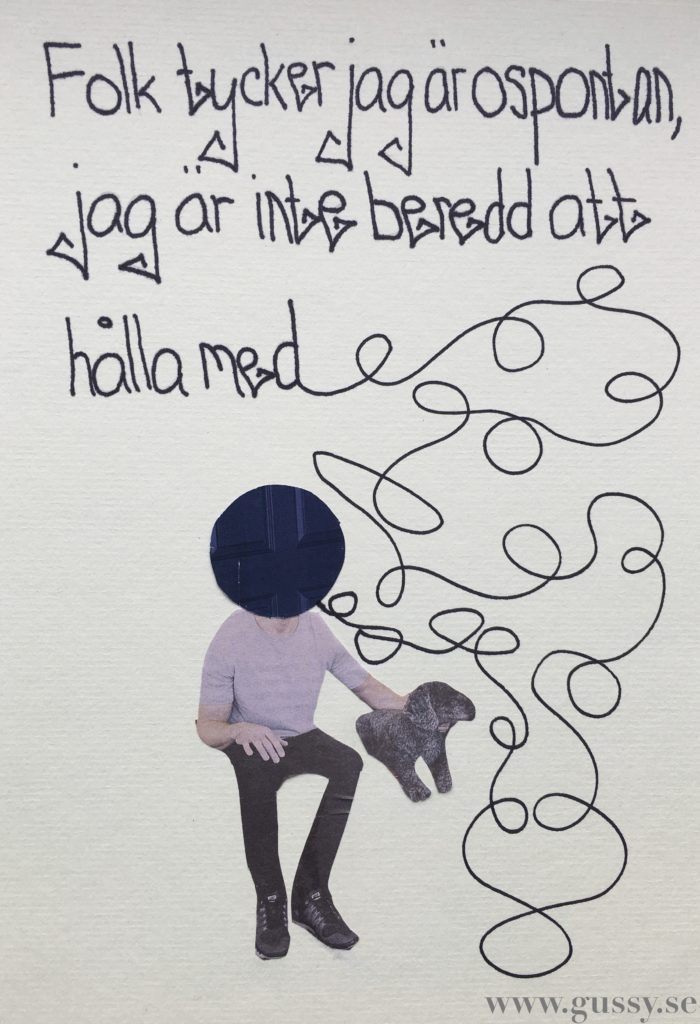 Folk tycker jag är ospontan,
jag är inte beredd att
hålla med
www.gussy.se